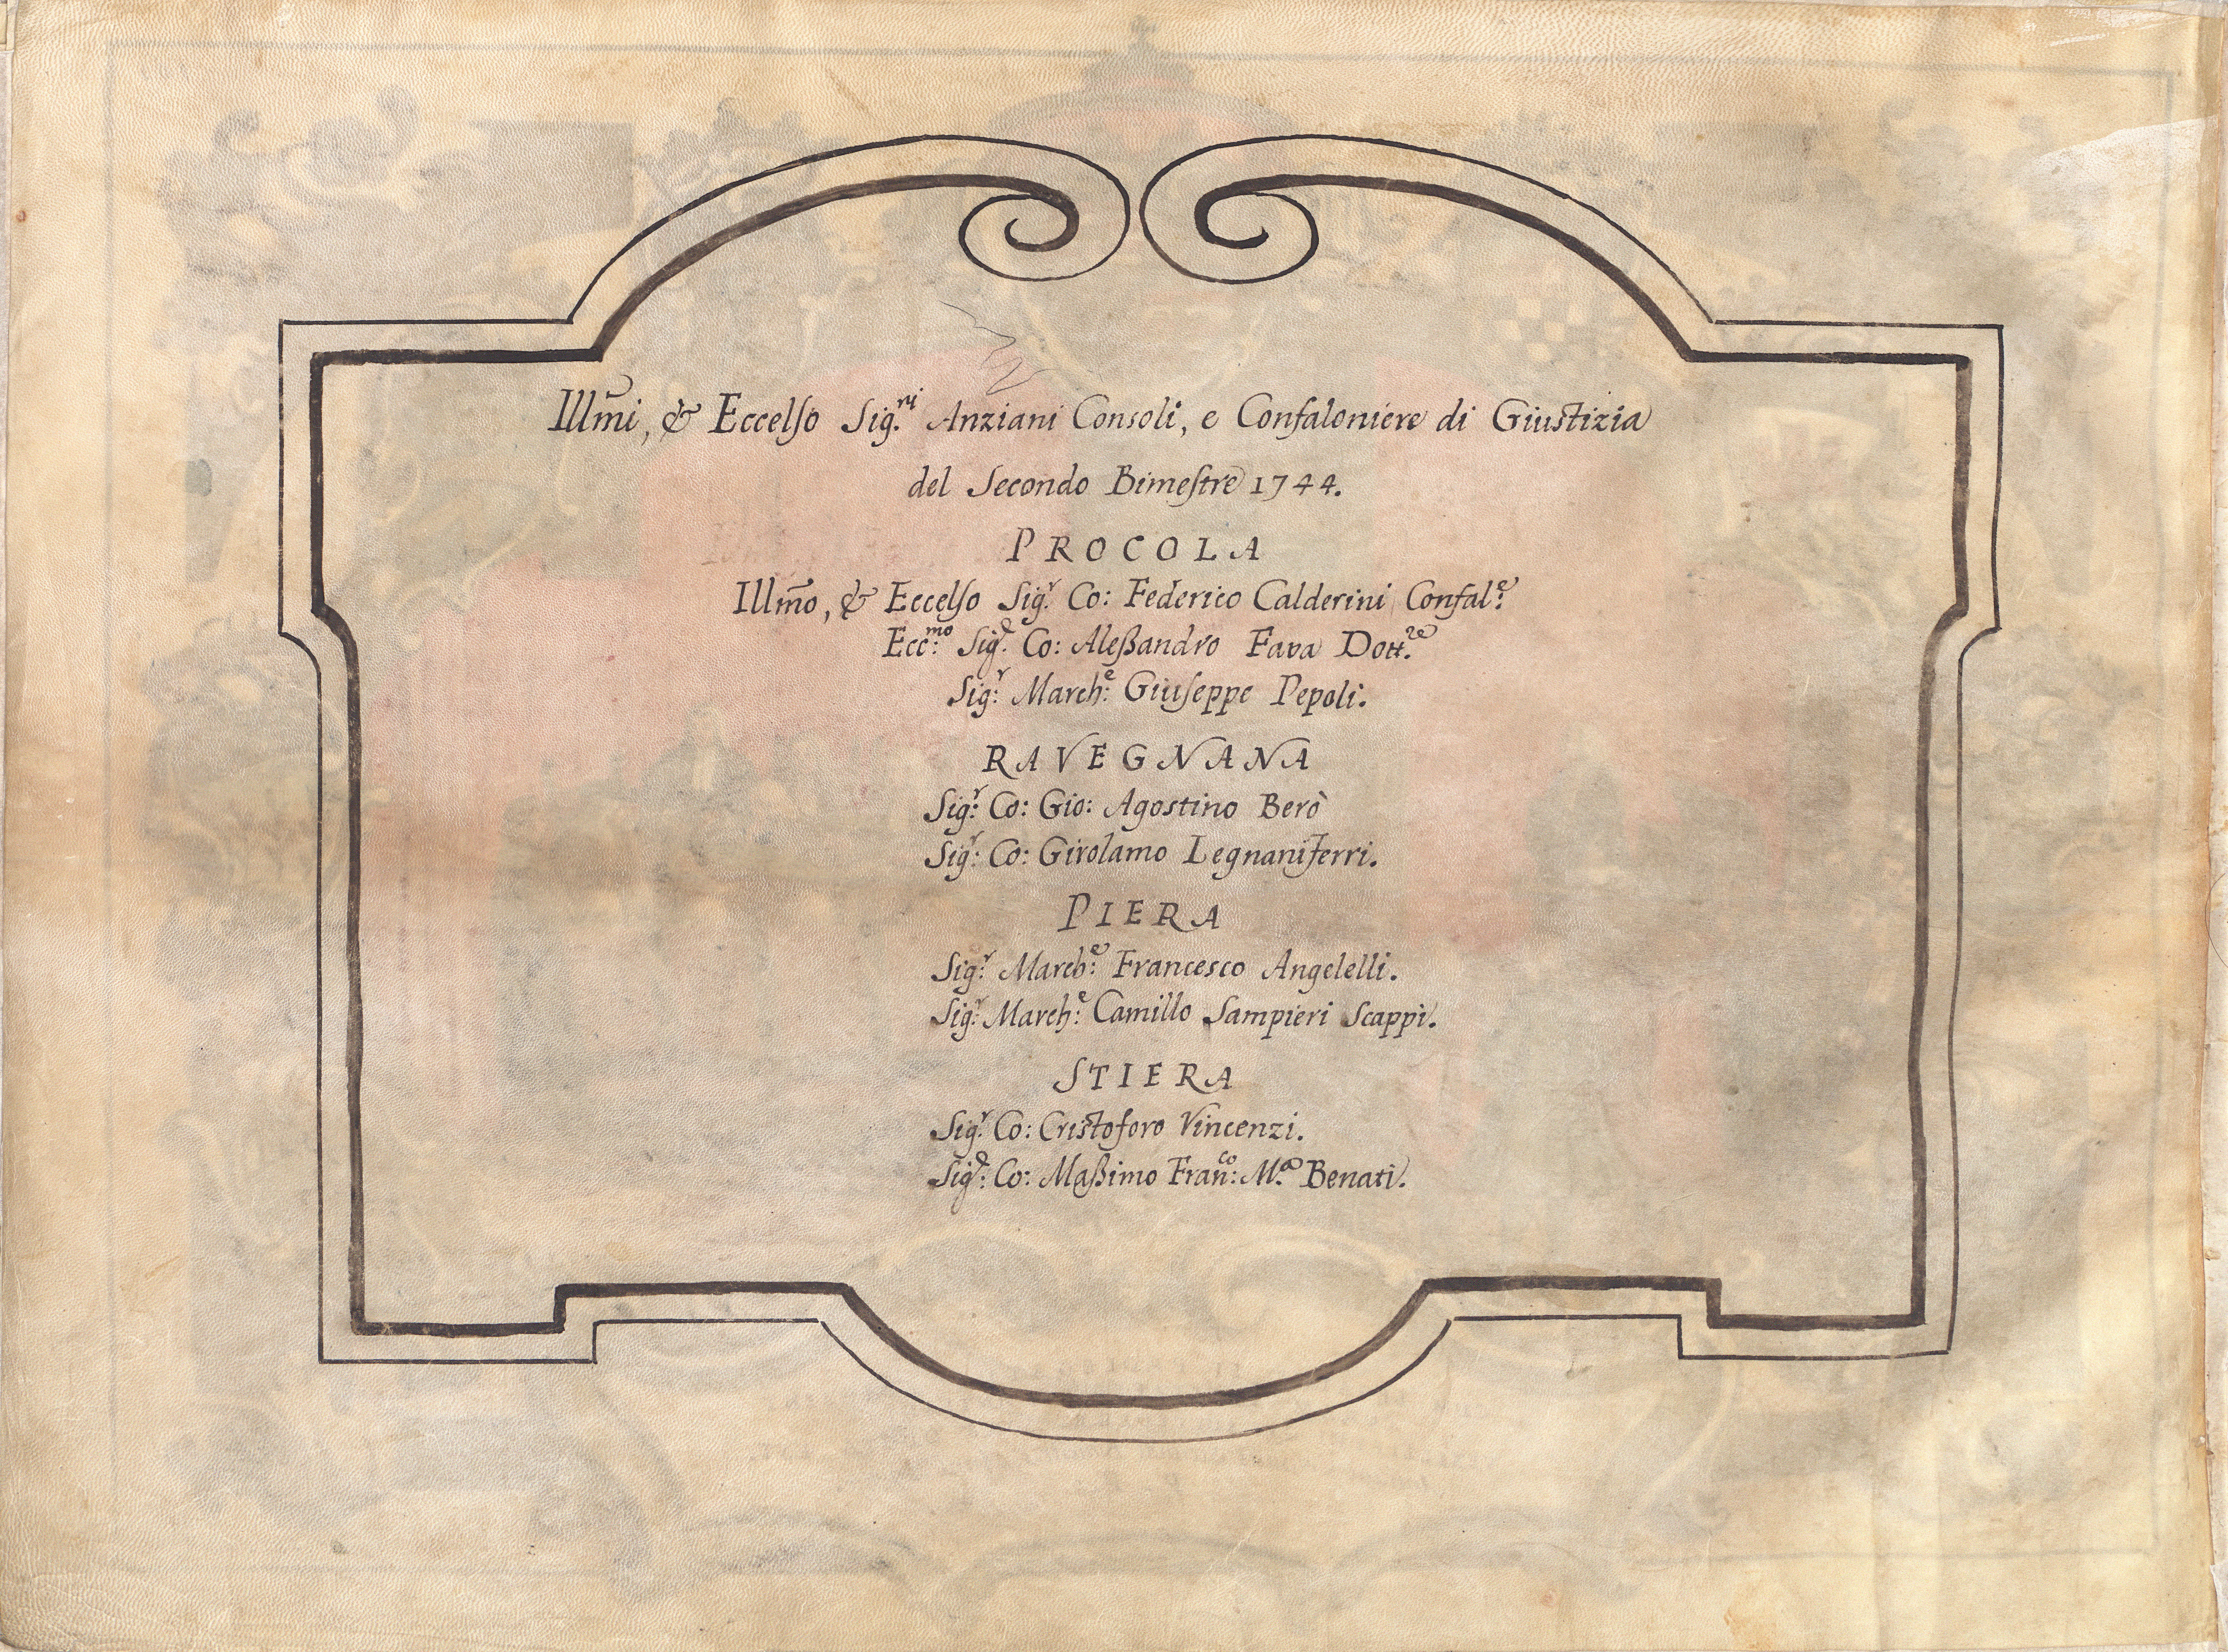 Illm̃i, & Eccelso Sig.ri Anziani Consoli, e Confaloniere di Giustizia
del Secondo Bimestre 1744.
PROCOLA
Illm̃o, & Eccelso Sig.r Co: Federico Calderini Confal.e
Ecc:mo Sig.r Co: Aleßandro Fava Dott.re
Sig:r March:e Giuseppe Pepoli.
RAVEGNANA
Sig:r Co: Gio: Agostino Berò
Sig:r Co: Girolamo Legnani Ferri.
PIERA
Sig:r March:e Francesco Angelelli.
Sig:r March:e Camillo Sampieri Scappi.
STIERA
Sig:r Co: Cristoforo Vincenzi.
Sig:r Co: Maßimo Fran:co M.a Benati.